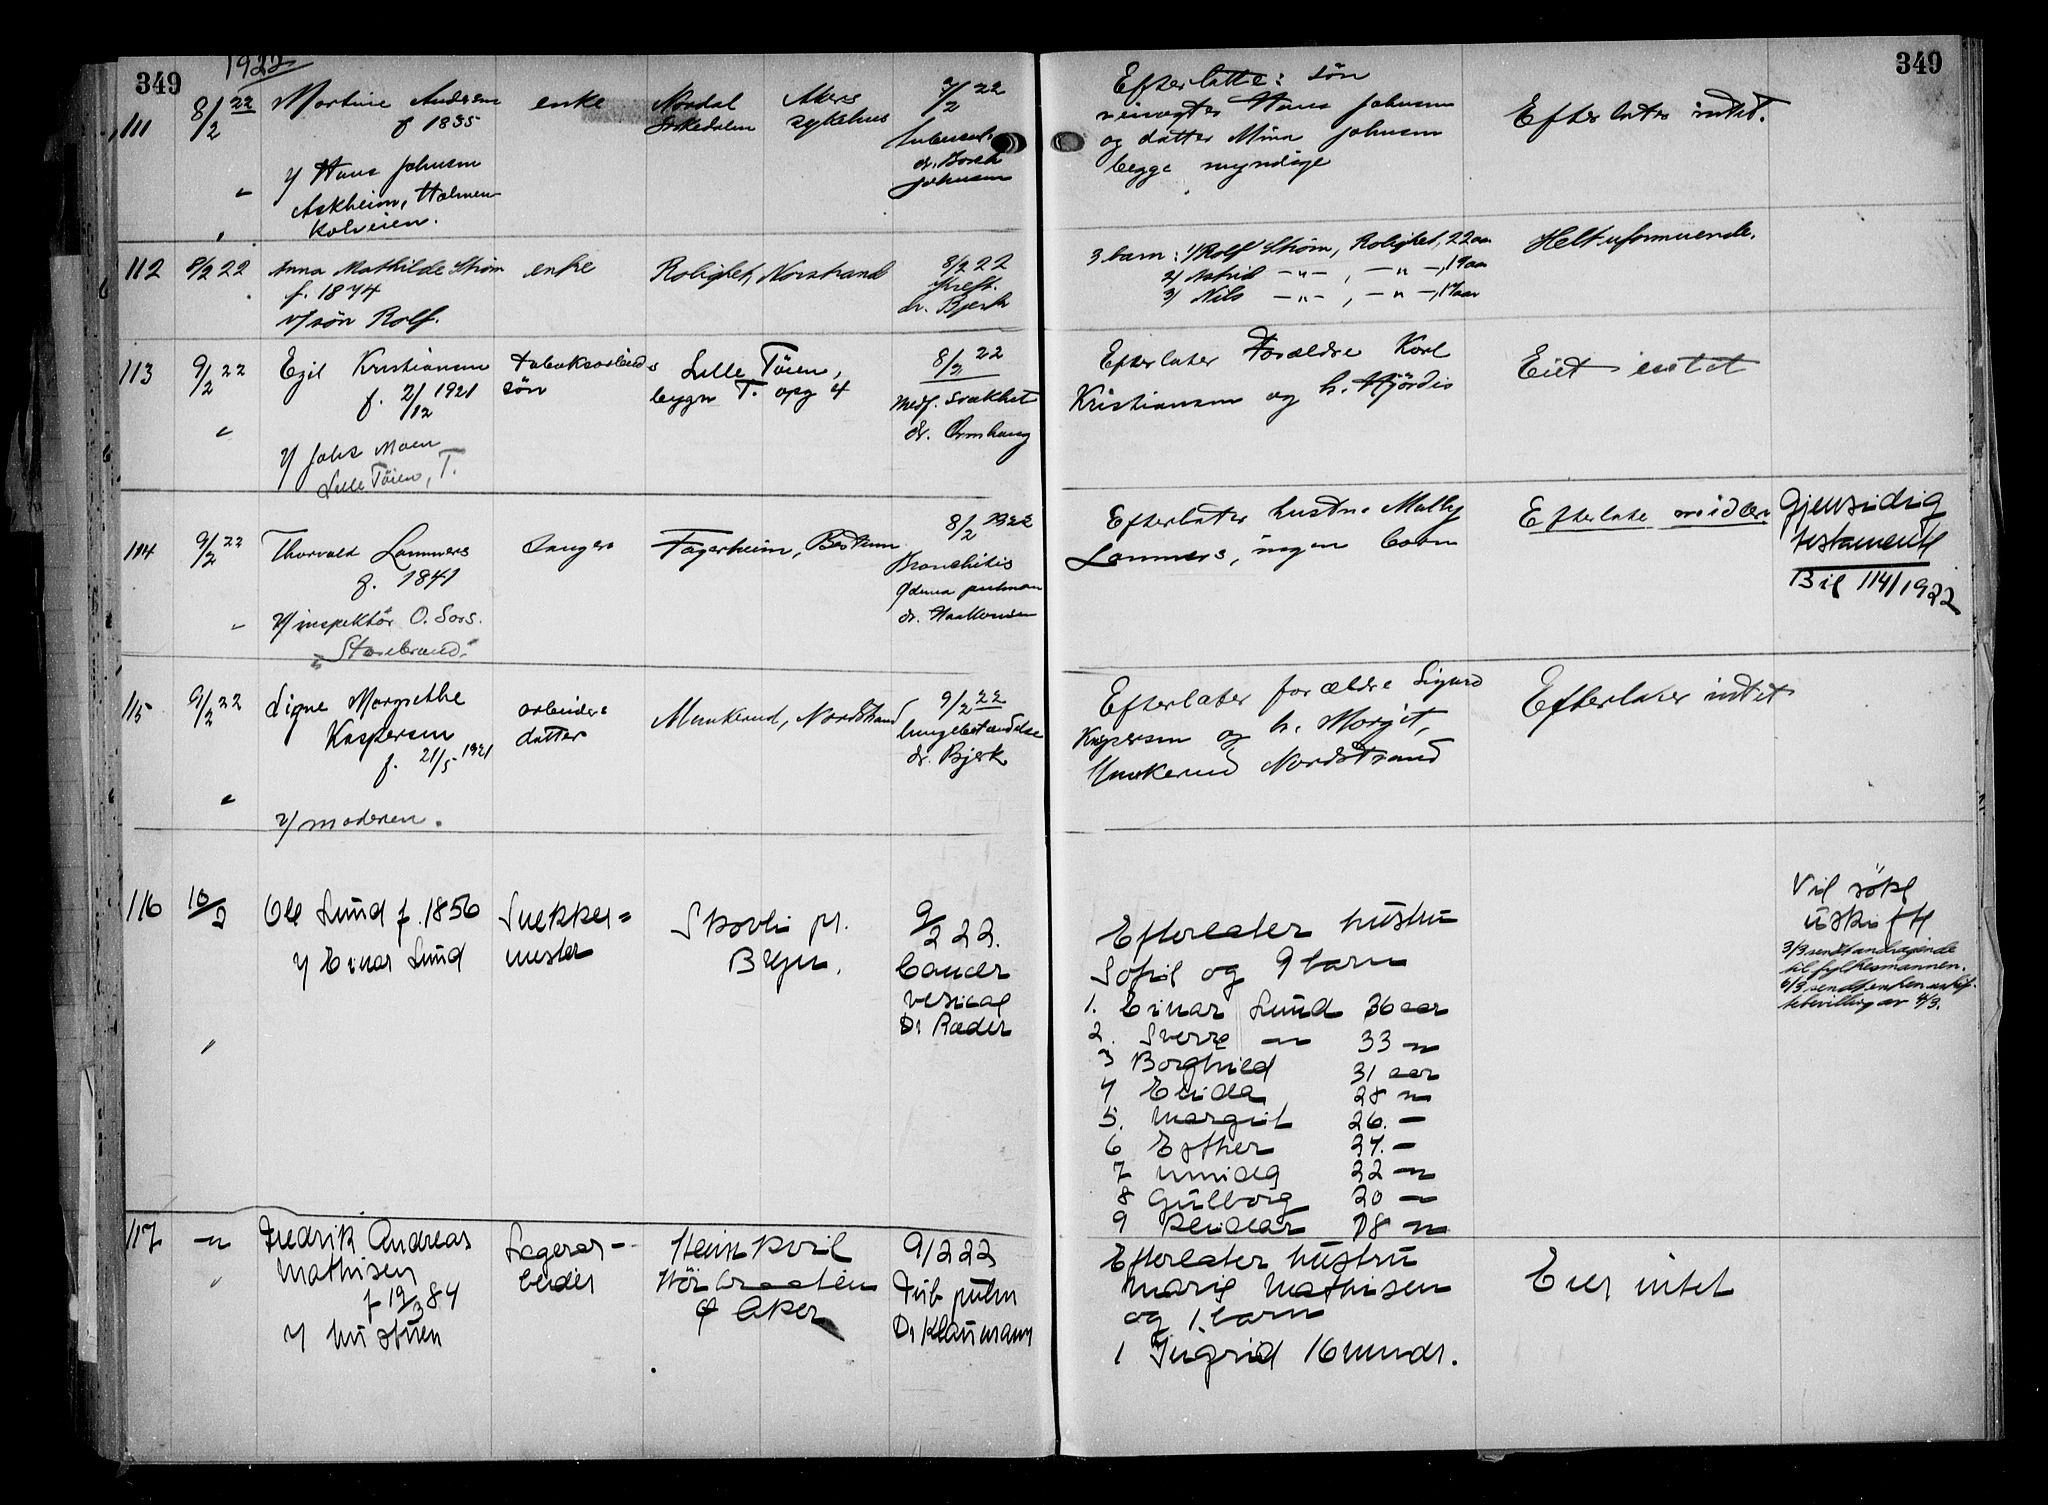 349
1922
349
111
8/2 22
Martine Andersen
f 1835
v/ Hans Johnsen
Askheim, Holmen
kolveien.
enke
Nordal
Sørkedalen
Akers
sykehus
3/2 22
dr. Borch
Johnsen
Efterlatte: søn
Hans Johnsen
og datter Mina Johnsen
begge myndige
Efterlater intet.
112
8/2 22
Anna Mathilde Strøm
f. 1874
v/søn Rolf.
enke
Rolighet, Norstrand
8/2 22
Kreft.
dr. Bjerk
3 barn: 1/ Rolf Strøm, Rolighet, 22 aar
2/ Astrid —"— , —"—, 19 aar
3/ Nils —"— , —"—, 17 aar
Helt uformuende.
113
9/2 22
Egil Kristiansen
f. 2/12 1921
v/ Johs Moen
Lille Tøien, T.
tobaksarbeiders
søn
Lille Tøien,
bygn T. opg 4
8/2 22
Medf. svakhet
dr. Ormhaug
Efterlater Forældre Karl
Kristiansen og h. Hjördis
Eiet intet
114
9/2 22
Thorvald Lammers
f. 1841
v/ inspektør O. Sørs.
"Storebrand"
Sanger
Fagerheim, Bestum
8/2 1922
Bronchitis
Ødema pulmon
dr. Haakonsen
Efterlater hustru Mally
Lammers, ingen barn
Efterlate midler
Gjensidig
testamente
Bil 114/1922
115
9/2 22
Signe Margrethe
Kaspersen
f. 21/5 1921
v/ moderen.
arbeiders
datter
Munkerud, Nordstrand
9/2 22
lungebetændelse
dr. Bjerk
Efterlater forældre Sigurd
Kaspersen og h. Margit,
Munkerud Nordstrand
Efterlater intet
116
10/2
Ole Lund f. 1856
v/ Einar Lund
Snekker=
mester
Skovli pr.
Bryn.
9/2 22.
Cancer
vesicae
Dr Ræder
Efterlater hustru
Sofie og 9 barn
1. Einar Lund 36 aar
2. Sverre —"— 33 —"—
3 Borghild 31 aar
4 Elida 28 —"—
5. Margit 26. —
6 Esther 24. —
7 22 —"—
8 Gulborg 20 —"—
9 Reidar 18 —"—
Vil søke
uskifte
3/3 sendt andragende
til fylkesmannen.
6/3 sendt enken uskif-
tebevilling av 4/3.
117
—"—
Fredrik Andreas
Mathisen
f 19/3 84
v/ hustruen
Lagerar-
beider
Heimkvil
Aker
9/2 22
Tub pulm
Dr Klaumann
Efterlater hustru
Marie Mathisen
og 1 barn
1 Ingrid 16 mndr.
Eier intet